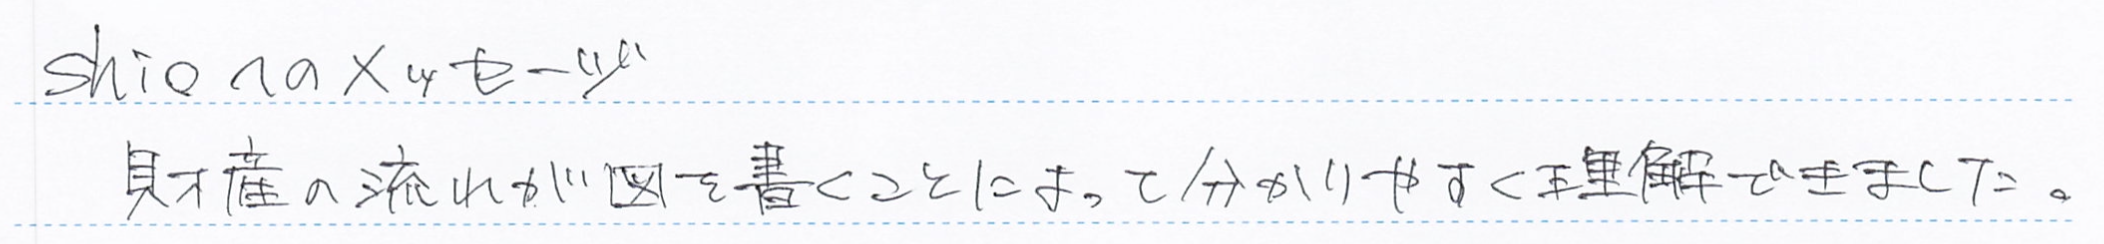 shioへのメッセージ
財産の流れが図を書くことによって分かりやすく理解できました。